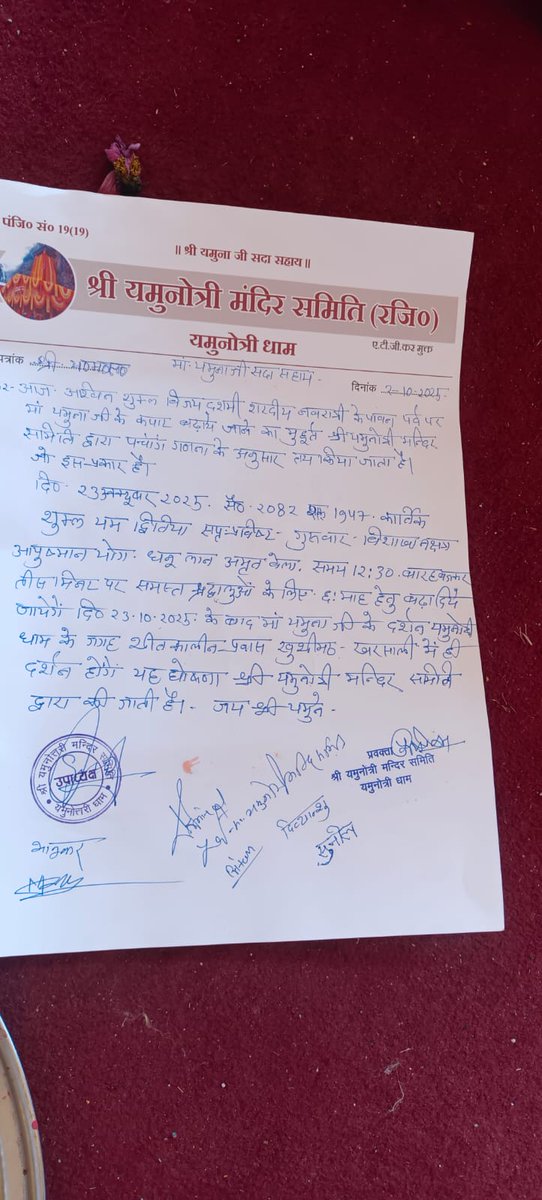 पंजि० सं० 19(19)
॥ श्री यमुना जी सदा सहाय॥
श्री यमुनोत्री मंदिर समिति (रजि०)
यमुनोत्री धाम
ए.टी.जी.कर मुक्त
पत्रांक
मां यमुना जी सदा सहाय
दिनांक 2-10-2025
आज अश्विन शुक्ल विजय दशमी शारदीय नवरात्री के पावन पर्व पर
मां यमुना जी के कपाट बढ़ाये जाने का मुहूर्त श्री यमुनोत्री मन्दिर
समिति द्वारा पचांग गणना के अनुसार तय किया जाता है।
जो इस प्रकार है।
दि० 23 अक्टूबर 2025. सं० 2082 1947. कार्तिक
शुक्ल यम द्वितिया गुरुवार - विशाखा नक्षत्र
आयुष्मान योग. धनु लग्न अमृत वेला. समय 12:30. बारह बजकर
तीस मिनट पर समस्त श्रद्धालुओं के लिए. छ: माह हेतु बढ़ा दिये
जायेगें दि० 23.10.2025. के बाद मां यमुना जी के दर्शन यमुनोत्री
धाम के जगह शीतकालीन प्रवास खुशीमठ - खरसाली में ही
दर्शन होगें यह घोषणा श्री यमुनोत्री मन्दिर समिति
द्वारा की जाती है। - जय श्री यमुने -
श्री यमुनोत्तरी मन्दिर समिति
उपाध्यक्ष
यमुनोत्तरी धाम
प्रवक्ता
श्री यमुनोत्री मन्दिर समिति
यमुनोत्री धाम
सुनील